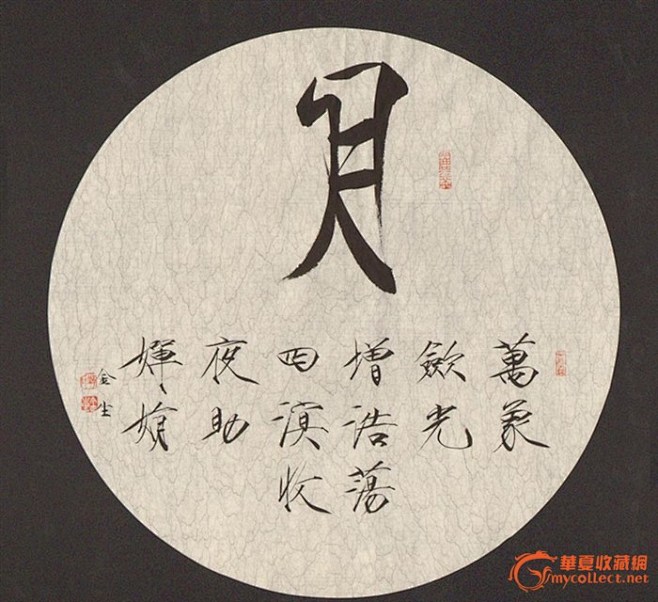 月
萬象
歛光
增浩蕩
四溟收
夜助
嬋娟
金尘
華夏收藏網
mycollect.net